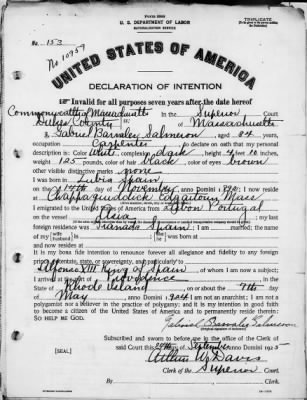 FORM 2203
TRIPLICATE
U. S. DEPARTMENT OF LABOR
NATURALIZATION SERVICE
No. 153
No 10957
UNITED STATES OF AMERICA
DECLARATION OF INTENTION
Invalid for all purposes seven years after the date hereof
Commonwealth of Massachusetts In the Superior Court
Dukes County ss: of Massachusetts
I, Gabriel Barrales Salmeron, aged 34 years,
occupation Carpenter, do declare on oath that my personal
description is: Color White, complexion dark, height 4 feet 10 inches,
weight 125 pounds, color of hair black, color of eyes brown
other visible distinctive marks none
I was born in Lubia Spain
on the 14th day of November, anno Domini 1890; I now reside
at Chappaquiddick Edgartown Mass
I emigrated to the United States of America from Lisbon Portugal
on the vessel Asia; my last
foreign residence was Granada Spain; I am married; the name
of my wife is; she was born at
and now resides at
It is my bona fide intention to renounce forever all allegiance and fidelity to any foreign
prince, potentate, state, or sovereignty, and particularly to
Alfonso XIII King of Spain, of whom I am now a subject;
I arrived at the port of Providence, in the
State of Rhode Island, on or about the 7th day
of May, anno Domini 1924; I am not an anarchist; I am not a
polygamist nor a believer in the practice of polygamy; and it is my intention in good faith
to become a citizen of the United States of America and to permanently reside therein:
SO HELP ME GOD.
Gabriel Barrales Salmeron
Subscribed and sworn to before me in the office of the Clerk of
said Court this 29th day of September anno Domini 1925
[SEAL]
Arthur W Davis
Clerk of the Superior Court.
By, Clerk.